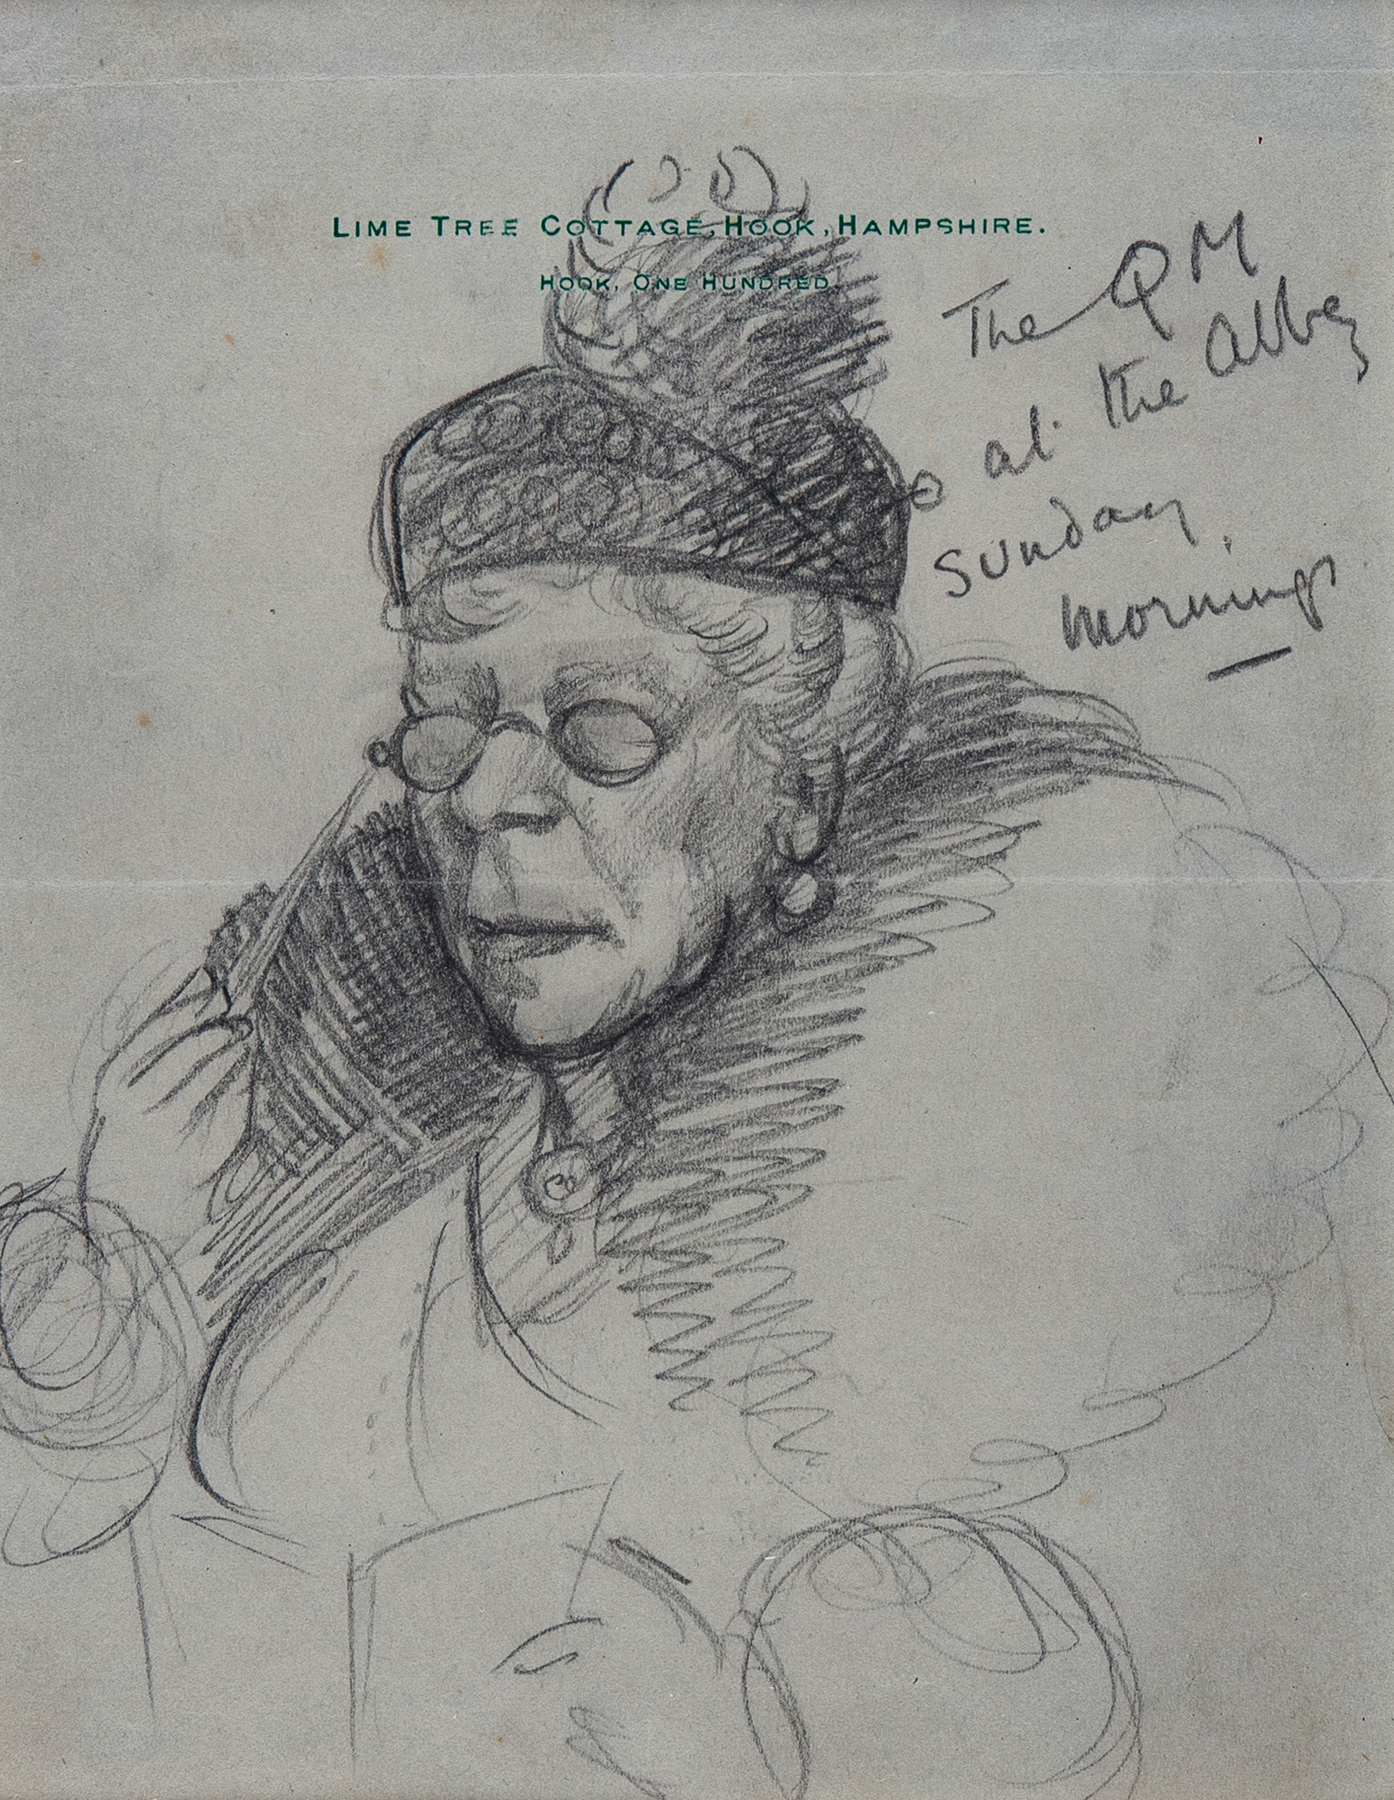 LIME TREE COTTAGE, HOOK, HAMPSHIRE.
HOOK, ONE HUNDRED
The QM
at the Abbey
Sunday
Mornings